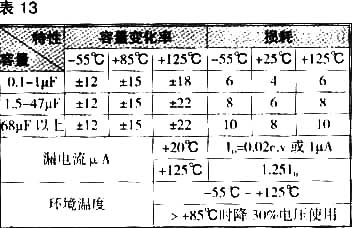 表 13
特性 容量变化率 损耗
容量 -55℃ +85℃ +125℃ -55℃ +25℃ +125℃
0.1-1μF ±12 ±15 ±18 6 4 6
1.5-47μF ±12 ±15 ±22 8 6 8
68μF以上 ±12 ±15 ±22 10 8 10
漏电流μA +20℃ I₀=0.02c.v 或 1μA
+125℃ 1.25I₀
环境温度 -55℃ - +125℃
> +85℃时降 30%电压使用